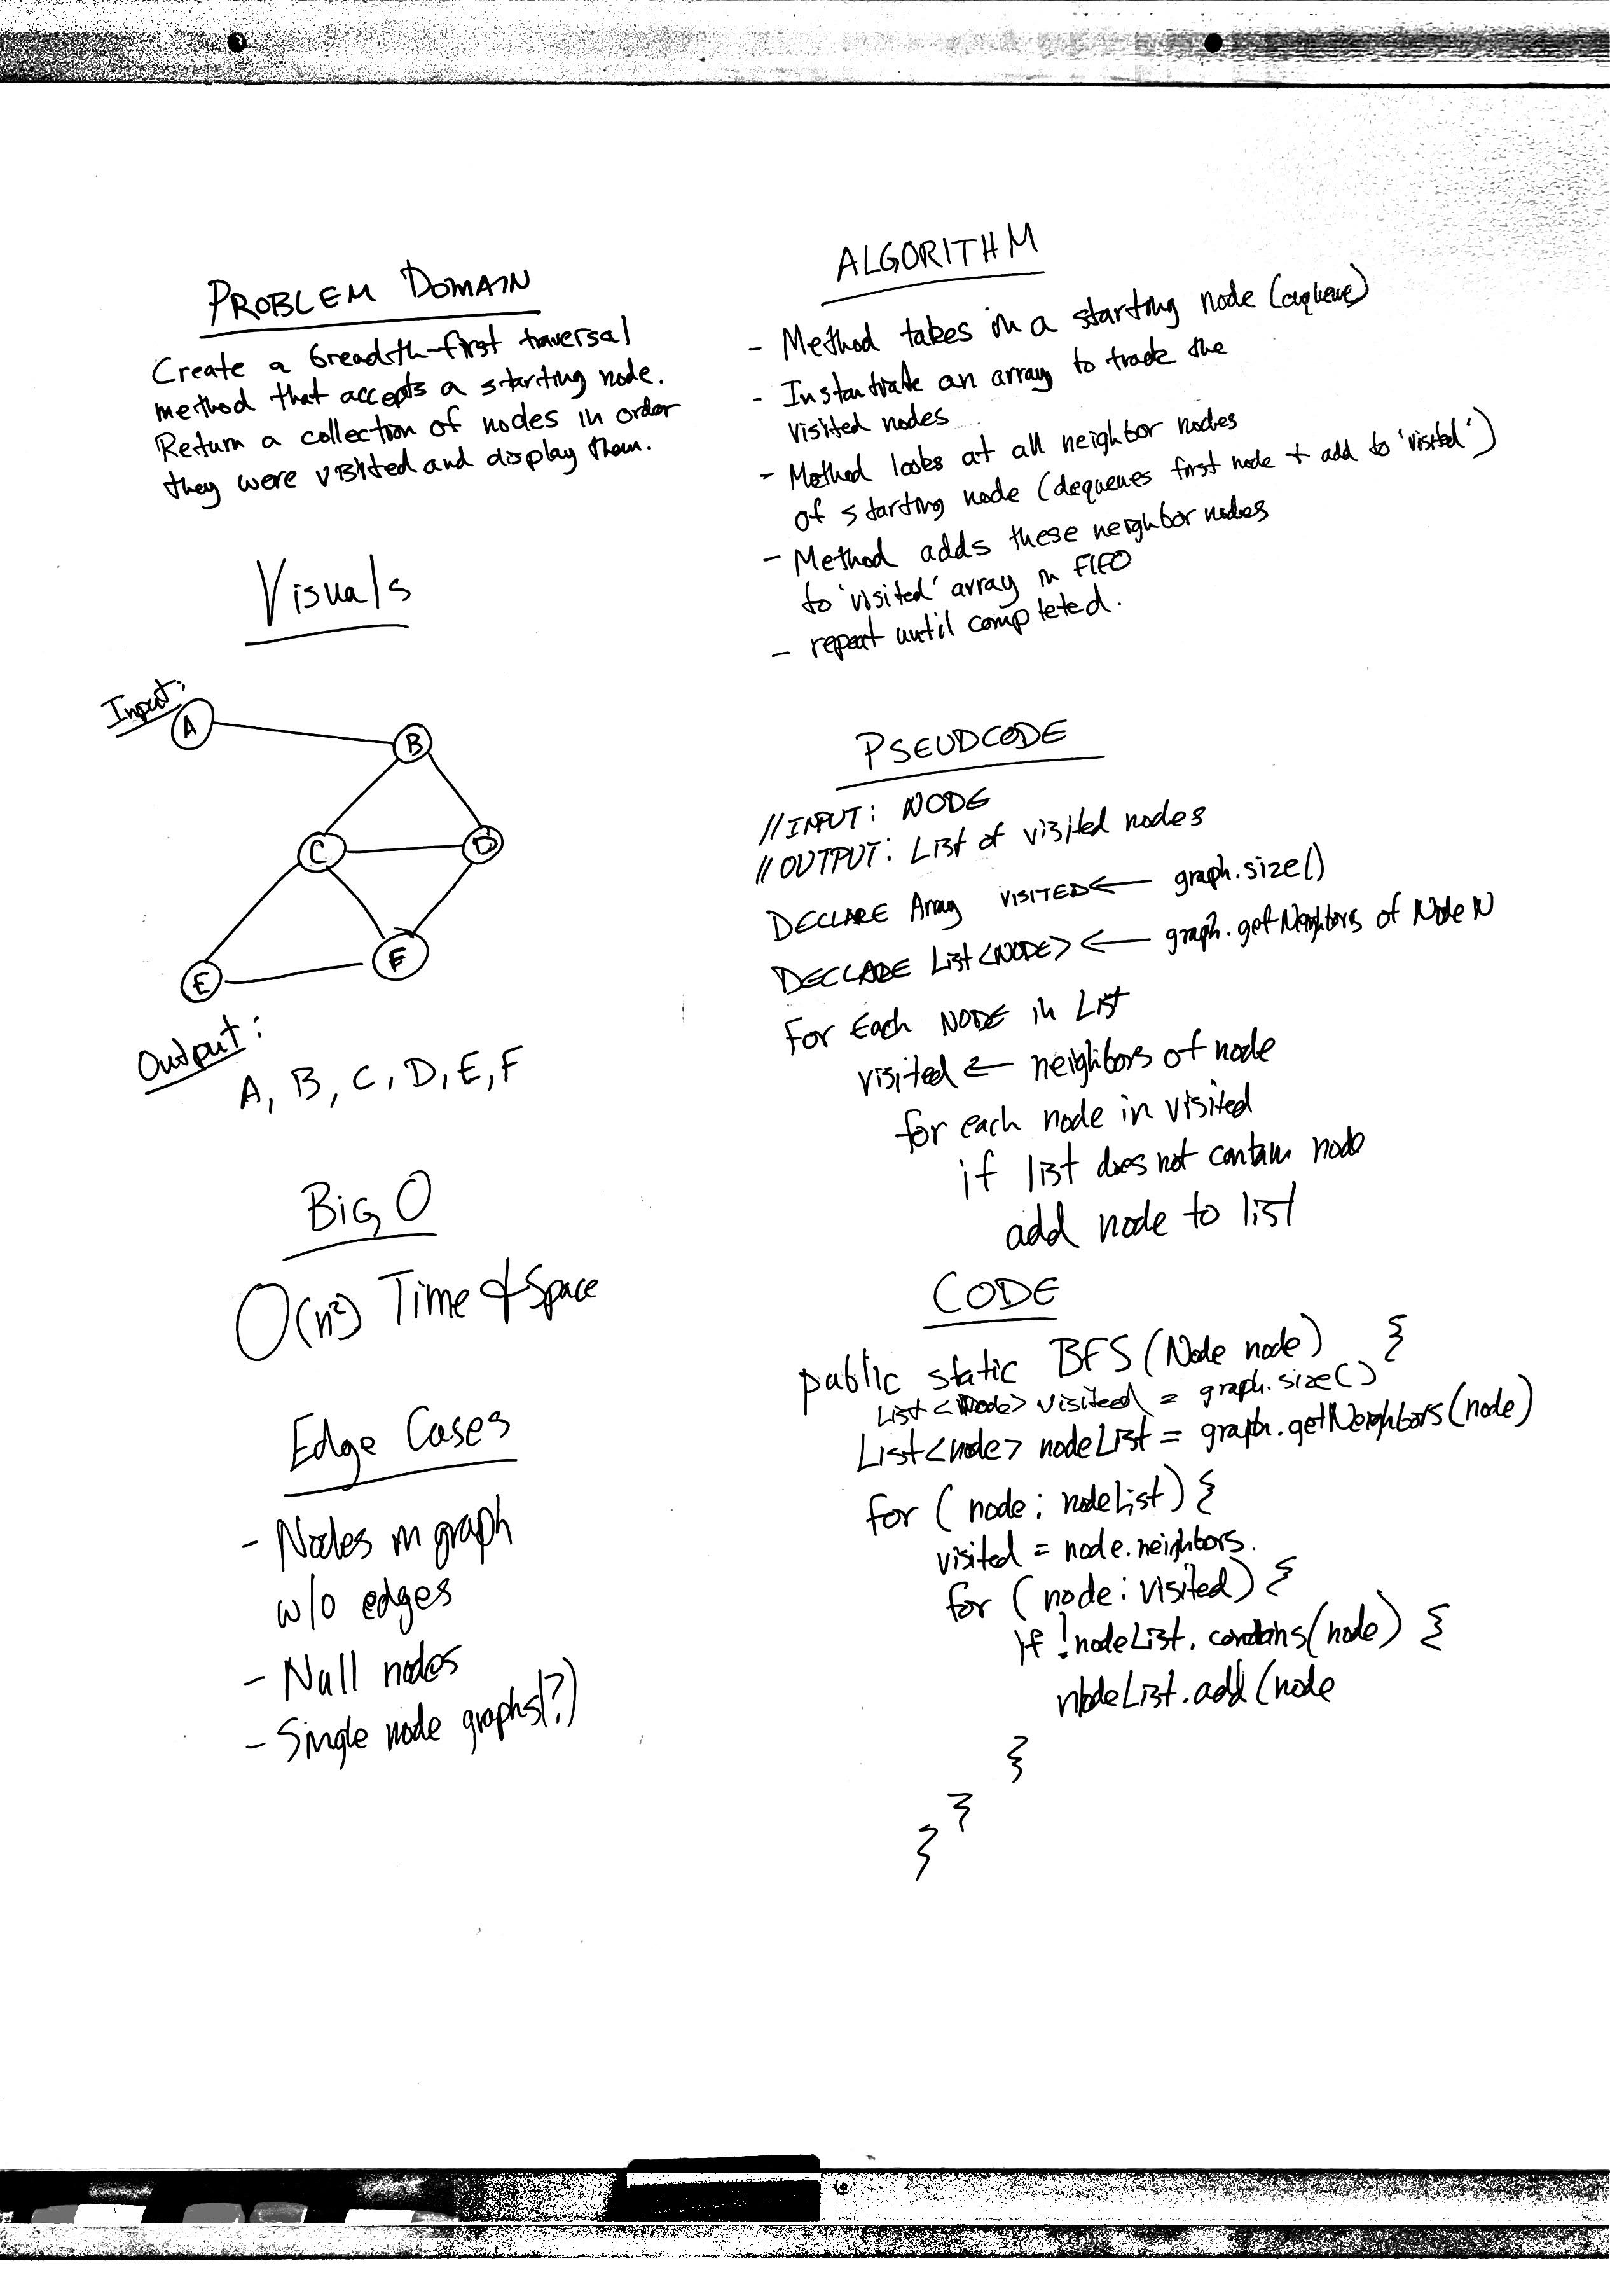 PROBLEM DOMAIN
Create a breadth-first traversal
method that accepts a starting node.
Return a collection of nodes in order
they were visited and display them.
Visuals
Input:
A
B
C
D
E
F
Output:
A, B, C, D, E, F
Big O
O(n²) Time & Space
Edge Cases
- Nodes in graph
w/o edges
- Null nodes
- Single node graphs(?)
ALGORITHM
- Method takes in a starting node (enqueue)
- Instantiate an array to track the
visited nodes
- Method looks at all neighbor nodes
of starting node (dequeues first node + add to 'visited')
- Method adds these neighbor nodes
to 'visited' array in FIFO
- repeat until completed.
PSEUDCODE
// INPUT: NODE
// OUTPUT: List of visited nodes
DECLARE Array VISITED ← graph.size()
DECLARE List<NODE> ← graph.getNeighbors of Node N
For Each NODE in List
visited ← neighbors of node
for each node in visited
if list does not contain node
add node to list
CODE
public static BFS (Node node) {
List<Node> visiteed = graph.size()
List<node> nodeList = graph.getNeighbors(node)
for (node: nodeList) {
visited = node.neighbors.
for (node: visited) {
if !nodeList.contains(node) {
nodeList.add(node
}
}
}